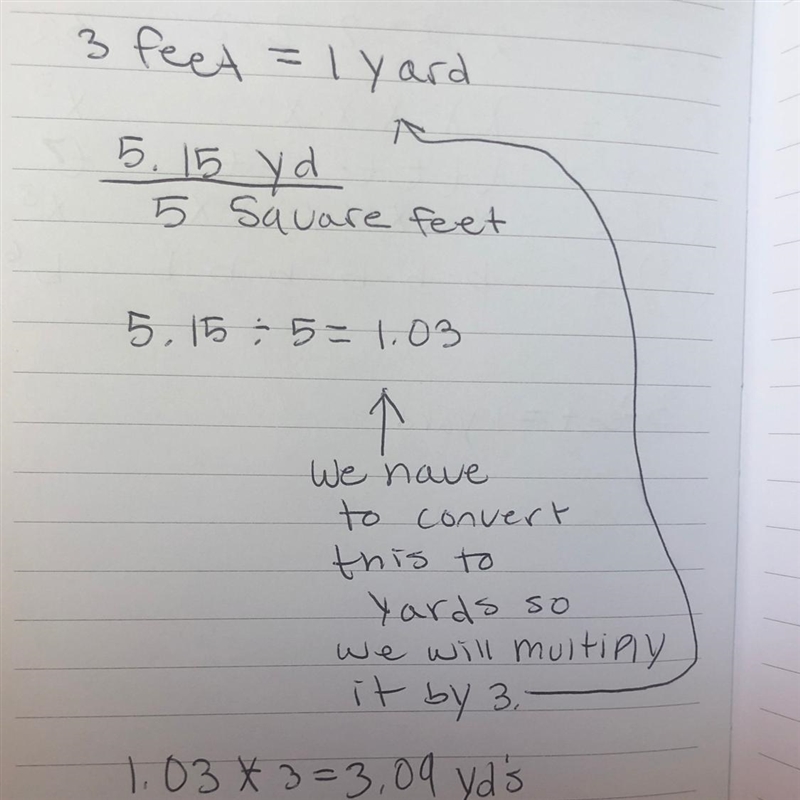 3 feet = 1 yard
5.15 yd
5 Square feet
5.15 ÷ 5 = 1.03
We have
to convert
this to
yards so
we will multiply
it by 3.
1.03 * 3 = 3.09 yd's